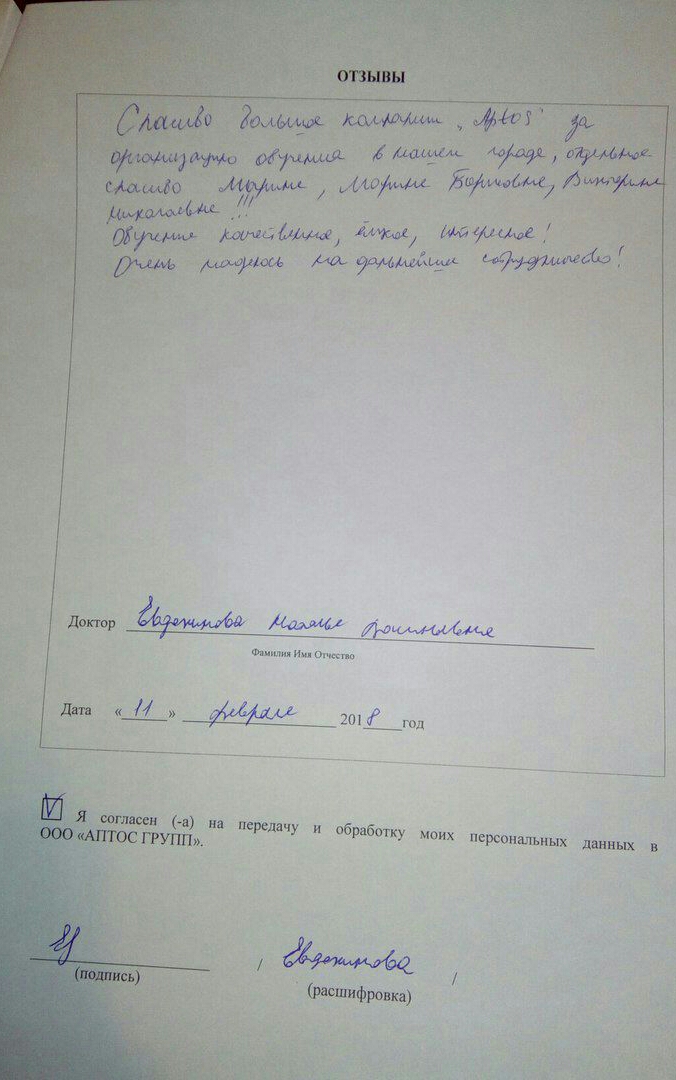 ОТЗЫВЫ
Спасибо большое компании "Aptos" за
организацию обучения в нашем городе, отдельное
спасибо Марине, Марине Борисовне, Виктории
Николаевне!!!
Обучение качественное, ёмкое, интересное!
Очень надеюсь на дальнейшее сотрудничество!
Доктор Евдокимова Наталья
Фамилия Имя Отчество
Дата «11» февраля 2018 год
V Я согласен (-а) на передачу и обработку моих персональных данных в
ООО «АПТОС ГРУПП».
/ Евдокимова /
(подпись) (расшифровка)